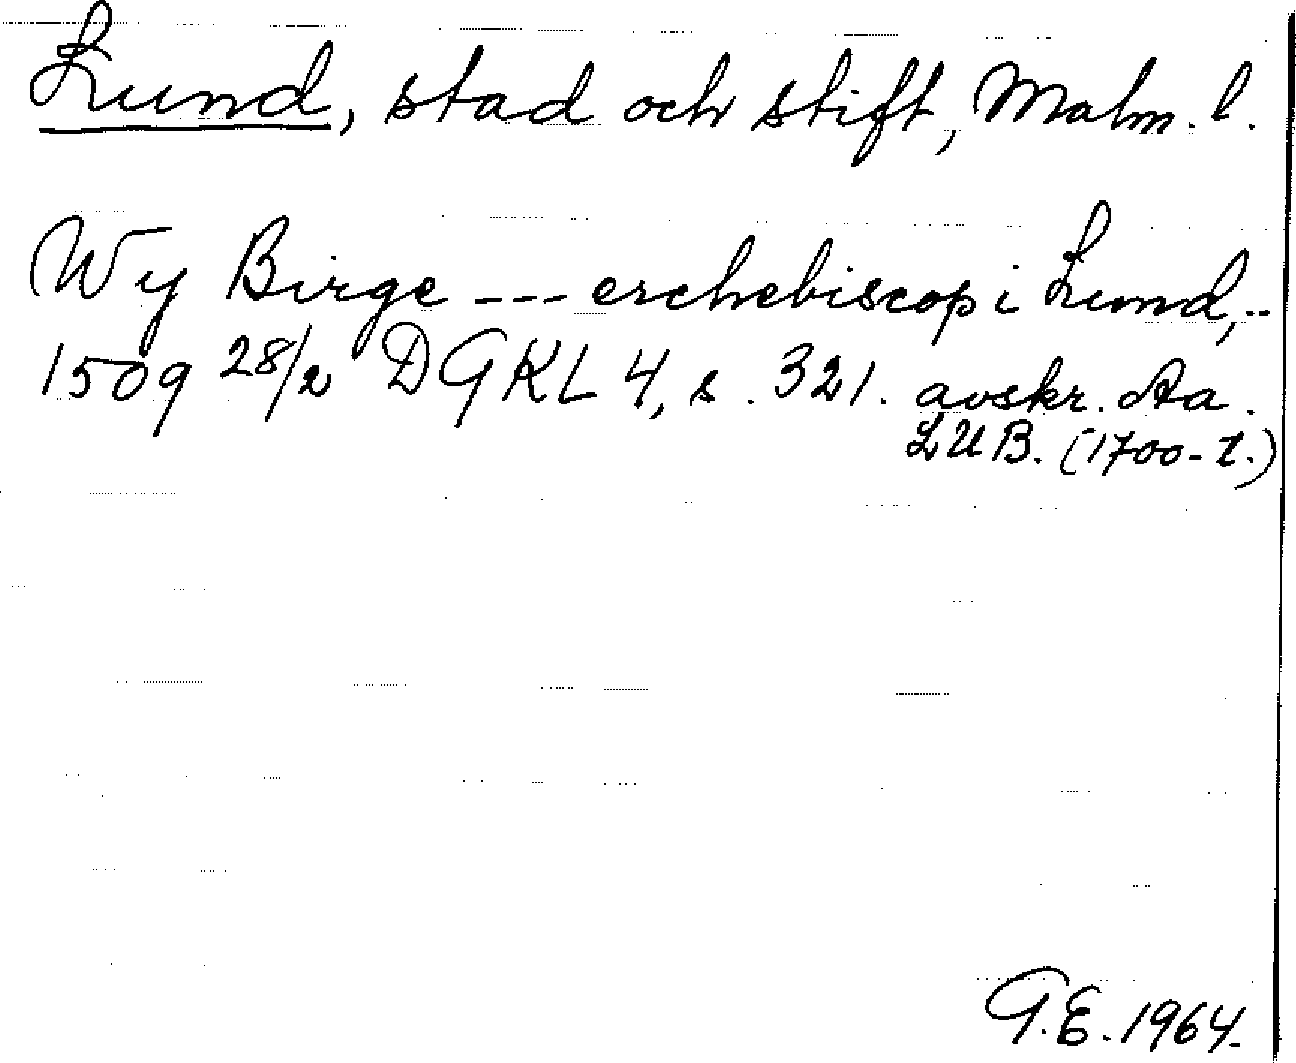 Lund, stad och stift, Malm. l.
Wy Birge --- erchebiscop i Lund,..
1509 28/2 DGKL 4, s. 321. avskr. Aa.
LUB. (1700-t.)
G.E. 1964.